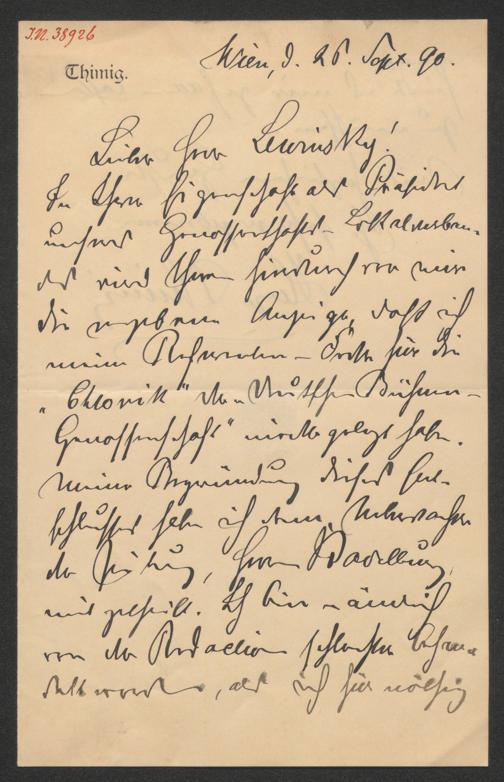 J.N. 38926
Thimig.
Wien, d. 26. Sept. 90.
Lieber Herr Lewinsky!
In Ihrer Eigenschaft als Präsident
unseres Genossenschafts-Lokalverban-
des wird Ihnen hierdurch von mir
die ergebene Anzeige, daß ich
meine Referenten-Stelle für die
"Chronik" der "Deutschen Bühnen-
Genossenschaft" niedergelegt habe.
Meine Begründung dieses Ent-
schlusses habe ich dem
der Zeitung, Herrn
mitgetheilt. Ich bin nämlich
von der Redaction schlechter behan-
delt worden, als ich für nöthig